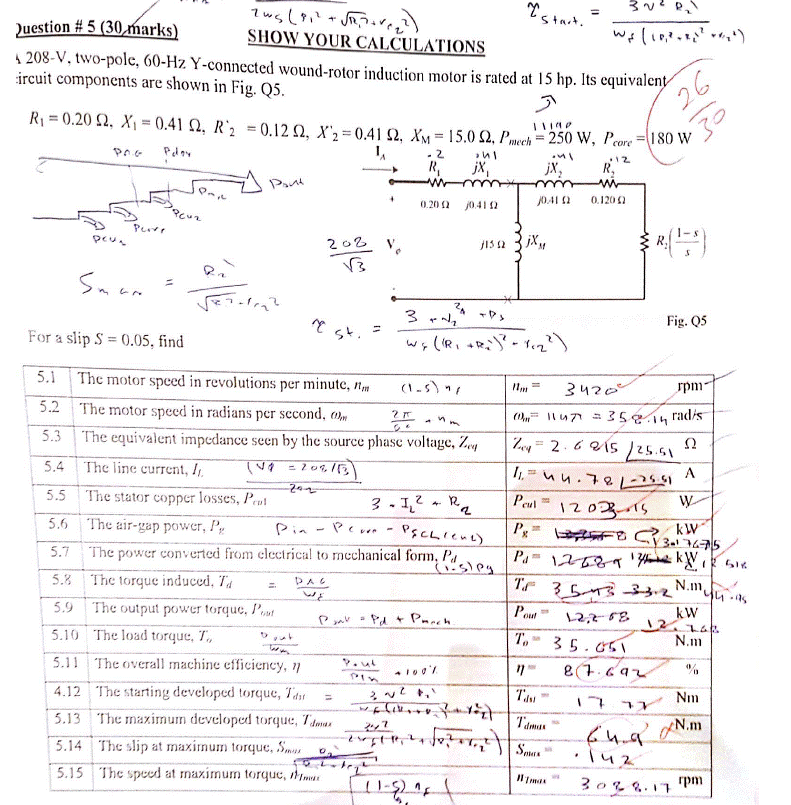 2ws(R1² + √R1² + Xeq²)
τstart. = 3V² R2`
Question # 5 (30 marks)
SHOW YOUR CALCULATIONS
A 208-V, two-pole, 60-Hz Y-connected wound-rotor induction motor is rated at 15 hp. Its equivalent
circuit components are shown in Fig. Q5.
26/30
11190
R₁ = 0.20 Ω, X₁ = 0.41 Ω, R`₂ = 0.12 Ω, X`₂ = 0.41 Ω, X_M = 15.0 Ω, P_mech = 250 W, P_core = 180 W
PAG Pdev
Pout
Pcore
Pcu2
Pcu1
I_A .2 .41 .41 .12
R₁ jX₁ jX₂ R₂
0.20 Ω j0.41 Ω j0.41 Ω 0.120 Ω
208/√3 V_φ j15 Ω jX_M R₂(1-s/s)
Smax = R2`
τst. =
Fig. Q5
For a slip S = 0.05, find
5.1 The motor speed in revolutions per minute, n_m (1-s) ns n_m = 3420 rpm
5.2 The motor speed in radians per second, ω_m 2π/60 * nm ω_m = 114π = 358.14 rad/s
5.3 The equivalent impedance seen by the source phase voltage, Z_eq Z_eq = 2.6815 ∠25.51 Ω
5.4 The line current, I_L (Vφ = 208/√3) I_L = 44.78∠-25.51 A
5.5 The stator copper losses, P_cu1 3 * I_L² * R P_cu1 = 1203.15 W
5.6 The air-gap power, P_g Pin - Pcore - P P_g = 13.17675 kW
5.7 The power converted from electrical to mechanical form, P_d (1-s)Pg P_d = kW 12.518
5.8 The torque induced, T_d = PAG/ws T_d = N.m
5.9 The output power torque, P_out Pout = Pd + Pmech P_out = kW 12.768
5.10 The load torque, T_o Pout/wm T_o = 35.651 N.m
5.11 The overall machine efficiency, η Pout/Pin *100% η = 87.692 %
4.12 The starting developed torque, T_dst = T_dst = 17.77 Nm
5.13 The maximum developed torque, T_dmax T_dmax = 64.9 N.m
5.14 The slip at maximum torque, S_max S_max = .142
5.15 The speed at maximum torque, n_Tmax (1-s) ns n_Tmax = 3088.17 rpm